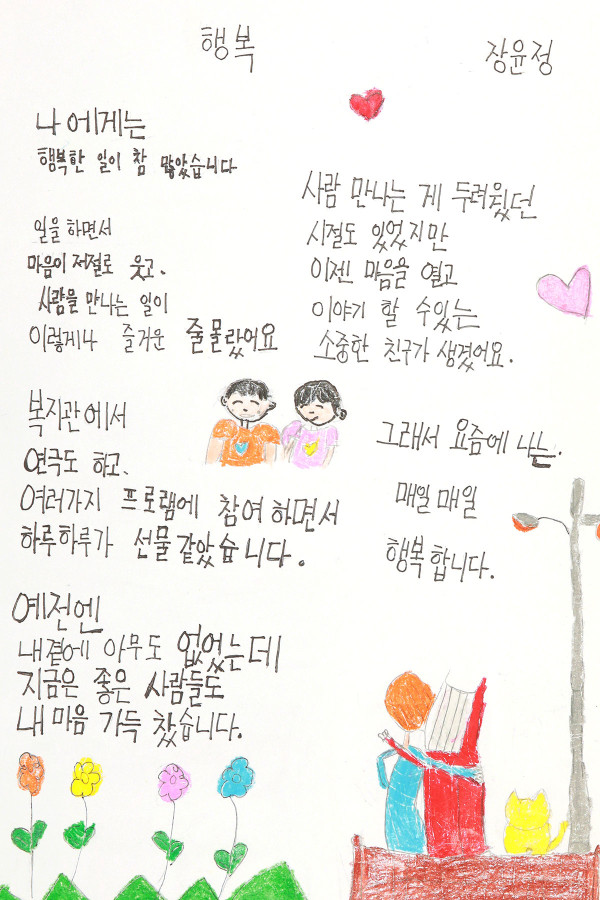 행복
장윤정
나에게는
행복한 일이 참 많았습니다
일을 하면서
마음이 저절로 웃고.
사람을 만나는 일이
이렇게나 즐거운 줄몰랐어요
복지관에서
연극도 하고.
여러가지 프로램에 참여하면서
하루하루가 선물같았습니다.
예전엔
내곁에 아무도 없었는데
지금은 좋은 사람들도
내마음 가득 찼습니다.
사람 만나는 게 두려웠던
시절도 있었지만
이젠 마음을 열고
이야기 할 수있는
소중한 친구가 생겼어요.
그래서 요즘에 나는.
매일매일
행복합니다.